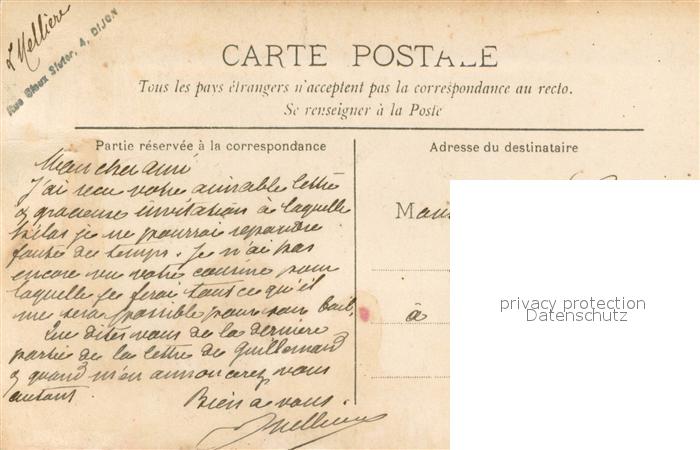 L Mellière
Rue Claux Sluter, 4, DIJON
CARTE POSTALE
Tous les pays étrangers n'acceptent pas la correspondance au recto.
Se renseigner à la Poste
Partie réservée à la correspondance
Adresse du destinataire
Mon cher ami
J'ai reçu votre aimable lettre
& gracieuse invitation à laquelle
hélas je ne pourrai repondre
faute de temps. Je n'ai pas
encore vu votre cousine pour
laquelle je ferai tout ce qu'il
me sera possible pour son bail,
Que dites vous de la dernière
partie de la lettre de Guillemard
& quand m'en annoncerez vous
autant.
Bien à vous.
Mellière
Mons
à
privacy protection
Datenschutz